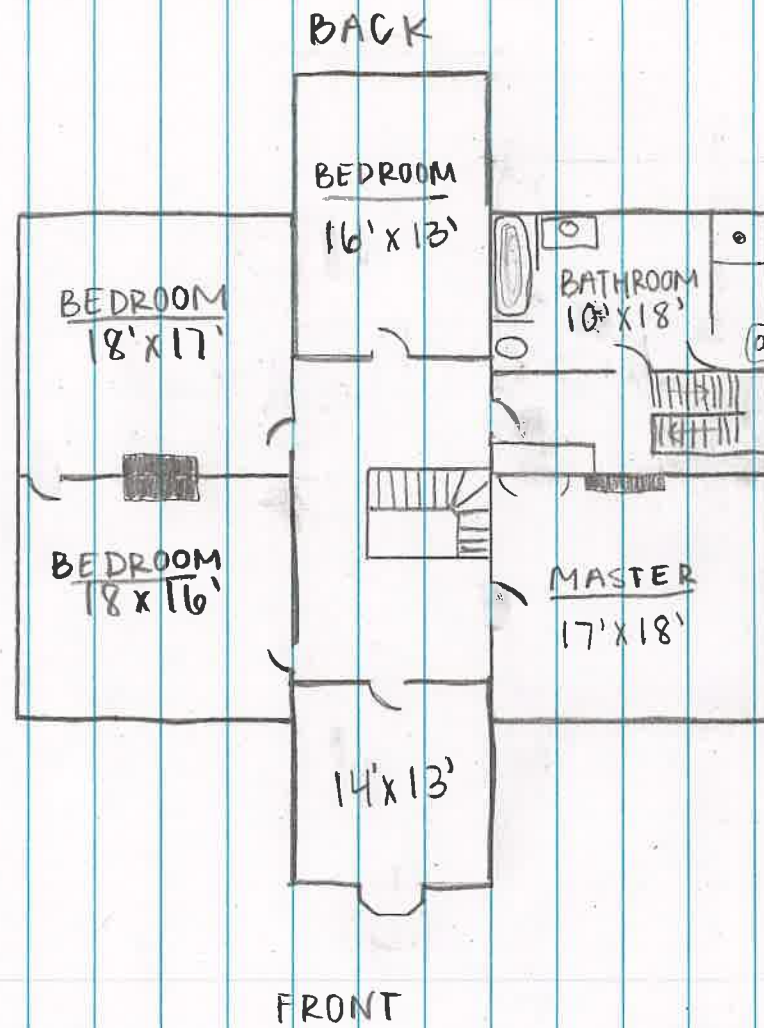 BACK
BEDROOM
16' X 13'
BEDROOM
18' X 17'
BATHROOM
10' X 18'
BEDROOM
18 X 16'
MASTER
17' X 18'
14' X 13'
FRONT